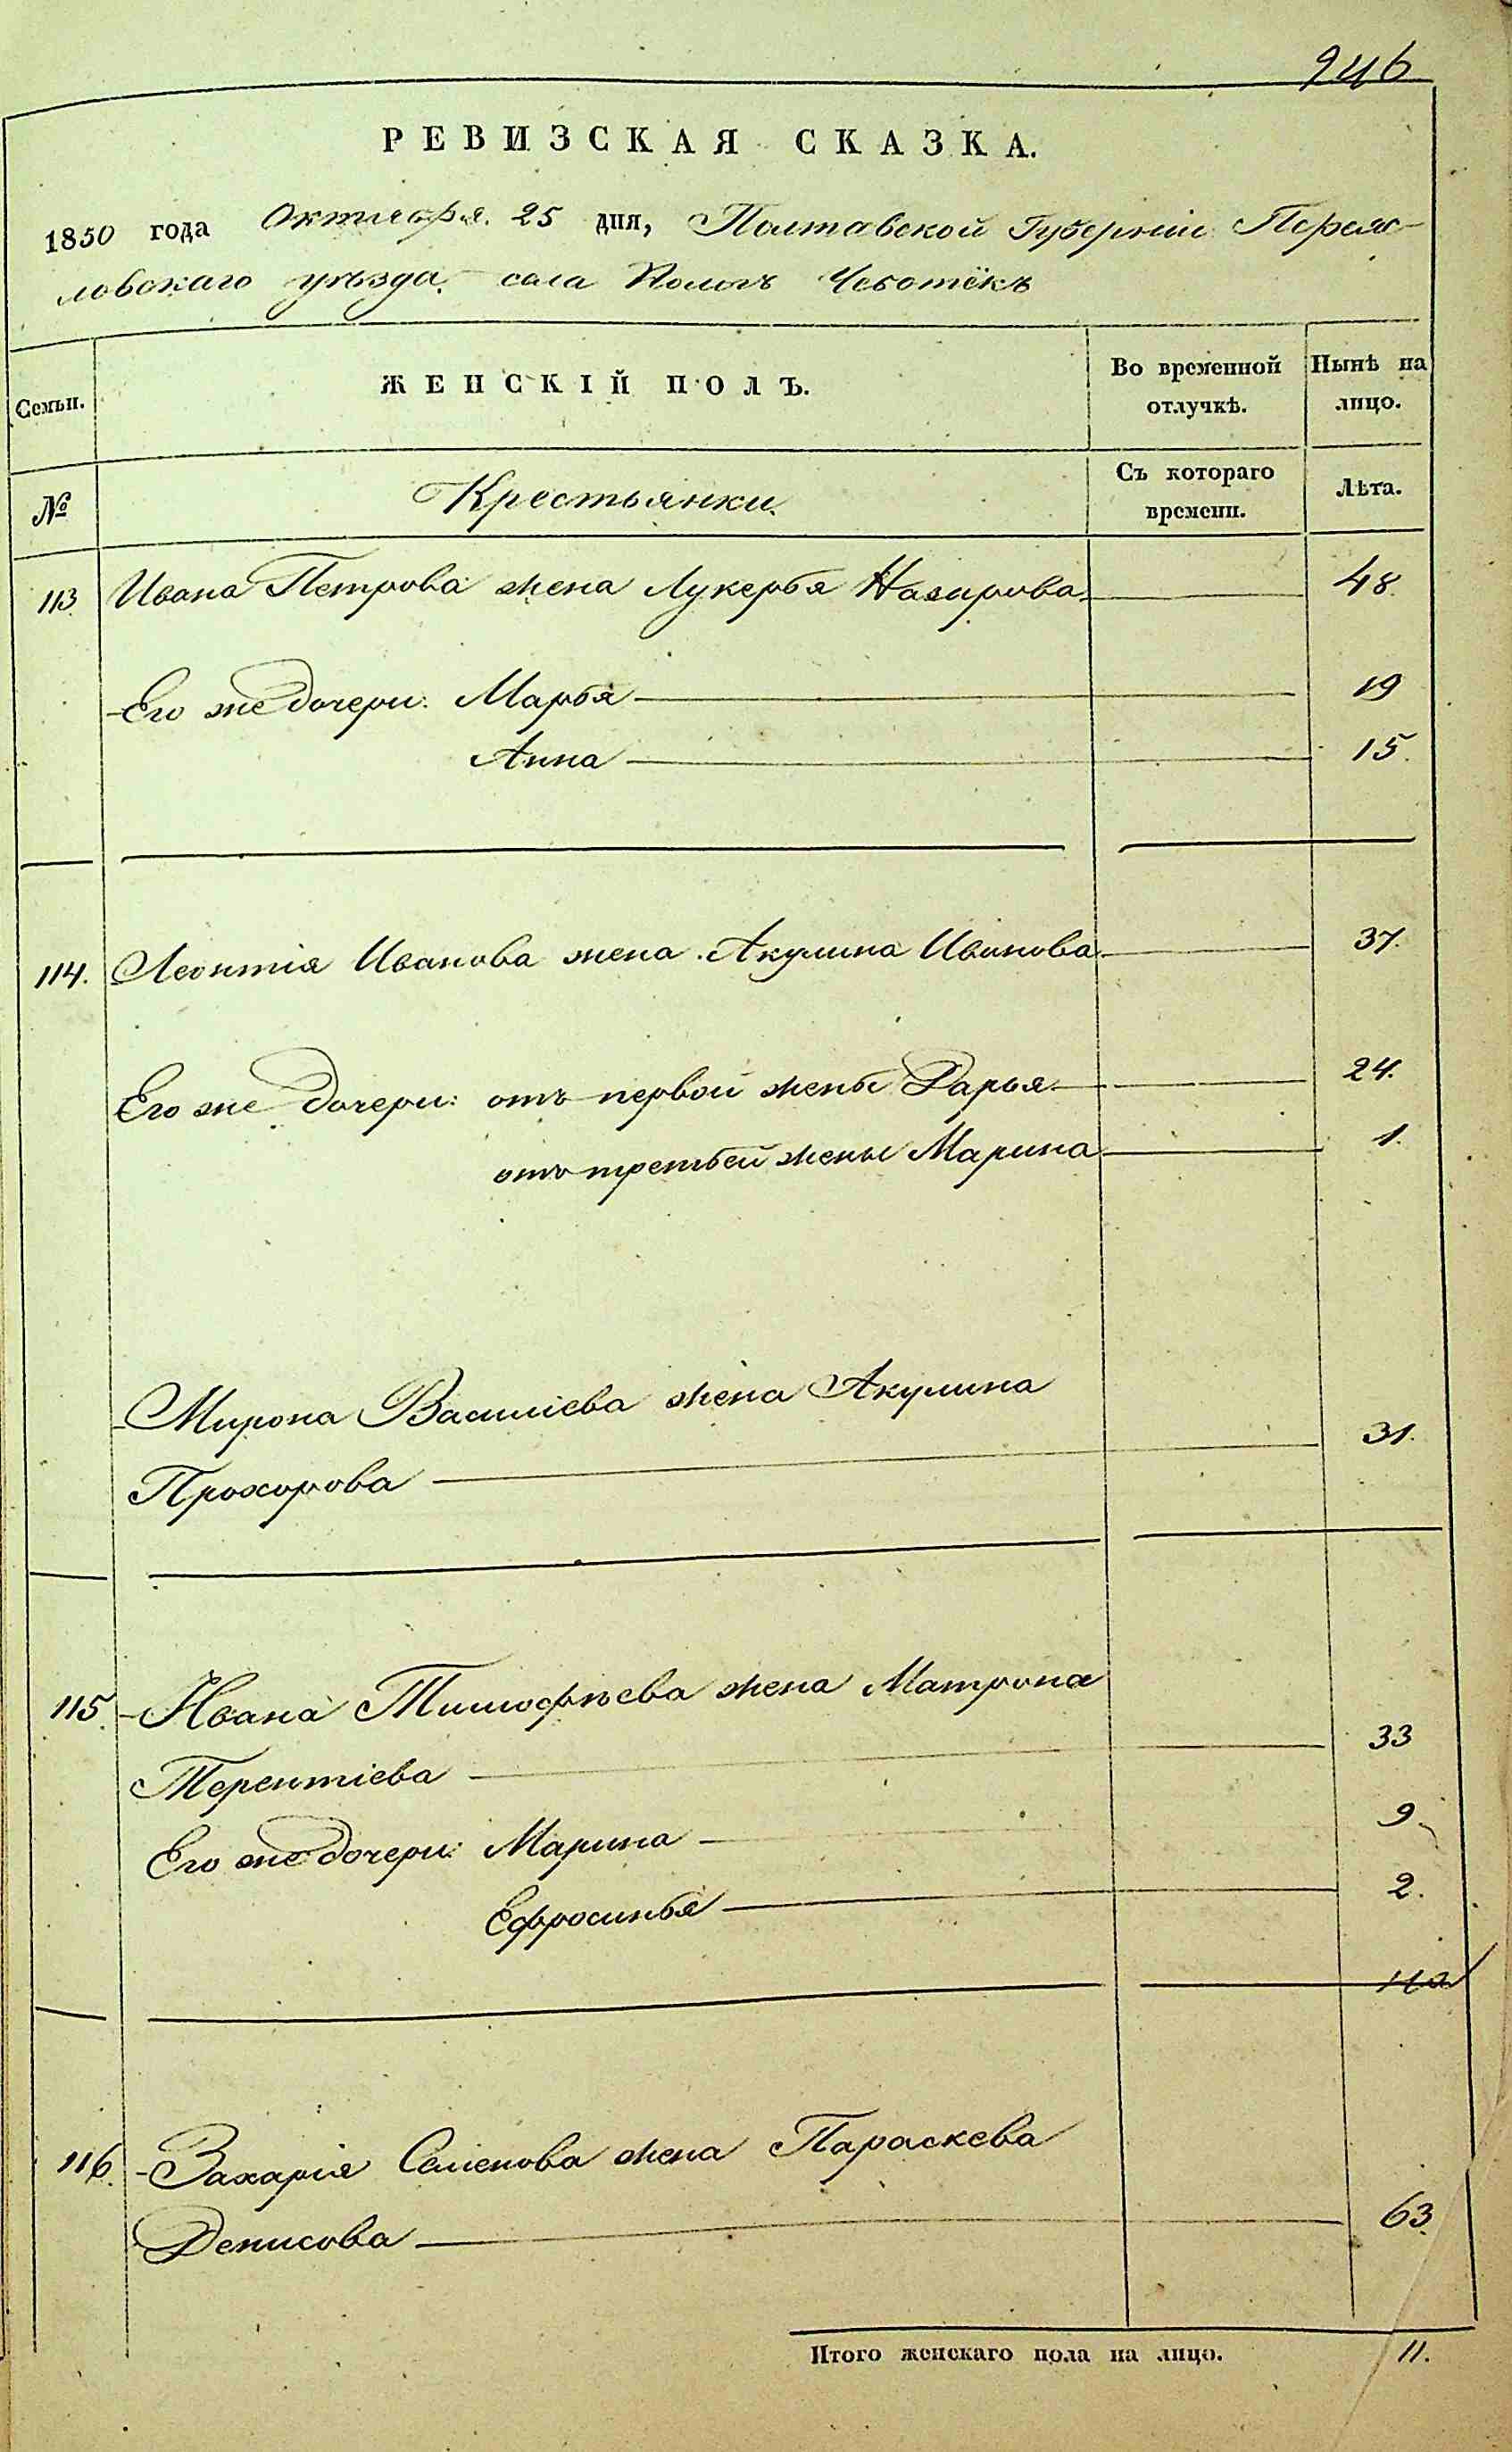 946
РЕВИЗСКАЯ СКАЗКА.
1850 года Октября 25 дня, Полтавской Губерніи Переяс-
ловскаго уѣзда села Чеботёкъ
Семьи.
ЖЕНСКІЙ ПОЛЪ.
Во временной отлучкѣ.
Нынѣ на лицо.
№
Крестьянки.
Съ котораго времени.
Лѣта.
113 Ивана Петрова жена Лукерья Назарова 48.
Его же дочери: Марья 19
Анна 15.
114. Леонтія Иванова жена Акулина Иванова 37.
Его же дочери: отъ первой жены Дарья 24.
отъ третьей жены Марина 1.
Мирона Василіева жена Акулина
Прохорова 31.
115. Ивана Тимофѣева жена Матрона
Терентіева 33
Его же дочери: Марина 9
Ефросинья 2.
116. Захарія Семенова жена Параскева
Денисова 63.
Итого женскаго пола на лицо. 11.